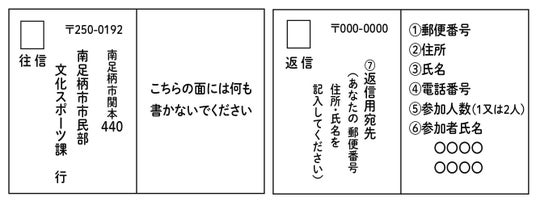 〒250-0192
往信
南足柄市関本
440
南足柄市市民部
文化スポーツ課 行
こちらの面には何も
書かないでください
〒000-0000
返信
⑦返信用宛先
(あなたの郵便番号
住所・氏名を
記入してください)
①郵便番号
②住所
③氏名
④電話番号
⑤参加人数(1又は2人)
⑥参加者氏名
〇〇〇〇
〇〇〇〇